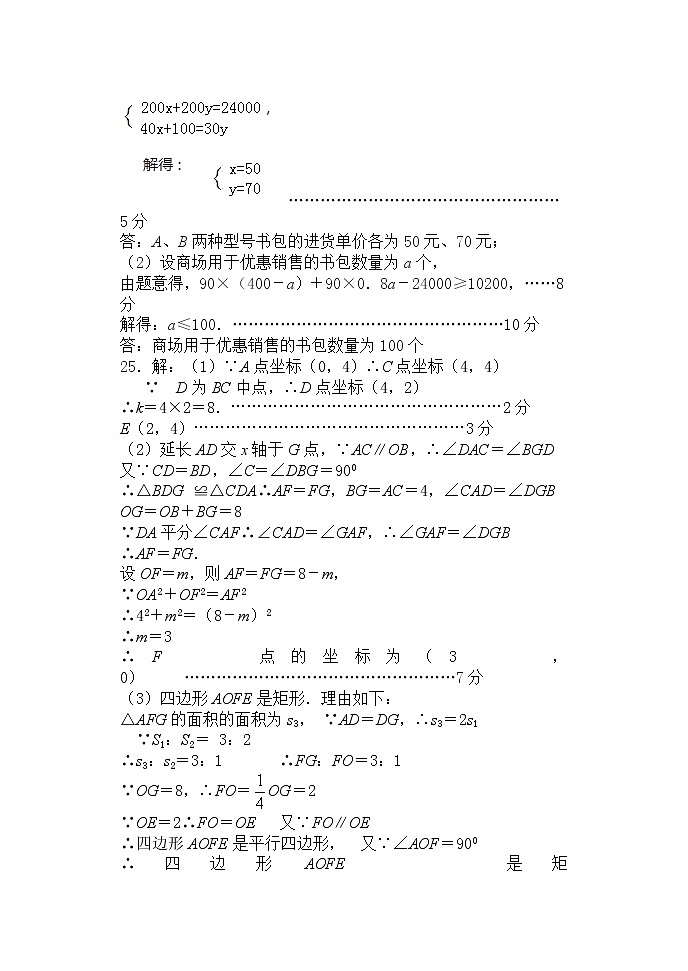 { 200x+200y=24000,
40x+100=30y
解得： { x=50
y=70 ……………………………………………
5分
答：A、B两种型号书包的进货单价各为50元、70元；
（2）设商场用于优惠销售的书包数量为a个，
由题意得，90×（400－a）＋90×0．8a－24000≥10200，……8
分
解得：a≤100．……………………………………………10分
答：商场用于优惠销售的书包数量为100个
25．解：（1）∵A点坐标（0，4）∴C点坐标（4，4）
∵ D为BC中点，∴D点坐标（4，2）
∴k＝4×2＝8．……………………………………………2分
E（2，4）……………………………………………3分
（2）延长AD交x轴于G点，∵AC∥OB，∴∠DAC＝∠BGD
又∵CD＝BD，∠C＝∠DBG＝90⁰
∴△BDG ≌△CDA∴AF＝FG，BG＝AC＝4，∠CAD＝∠DGB
OG＝OB＋BG＝8
∵DA平分∠CAF∴∠CAD＝∠GAF，∴∠GAF＝∠DGB
∴AF＝FG．
设OF＝m，则AF＝FG＝8－m，
∵OA²＋OF²＝AF²
∴4²＋m²＝（8－m）²
∴m＝3
∴ F 点 的 坐 标 为 （ 3 ，
0） ……………………………………………7分
（3）四边形AOFE是矩形．理由如下：
△AFG的面积的面积为s₃， ∵AD＝DG，∴s₃＝2s₁
∵S₁：S₂＝ 3：2
∴s₃：s₂＝3：1 ∴FG：FO＝3：1
∵OG＝8，∴FO＝1/4OG＝2
∵OE＝2∴FO＝OE 又∵FO∥OE
∴四边形AOFE是平行四边形， 又∵∠AOF＝90⁰
∴ 四 边 形 AOFE 是 矩